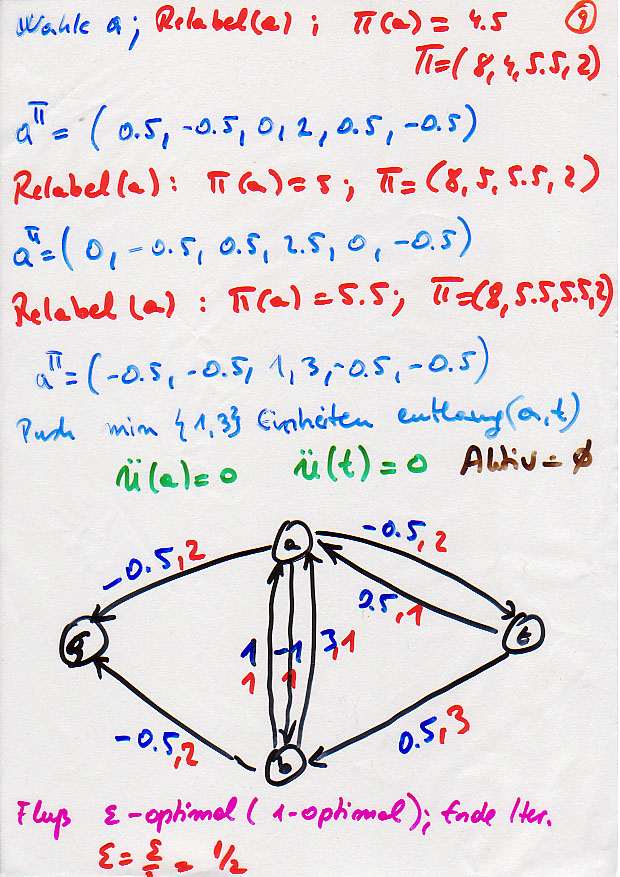 Wähle a; Relabel(a); π(a) = 4.5 9
π=(8,4,5.5,2)
a^π = ( 0.5, -0.5, 0, 2, 0.5, -0.5)
Relabel(a): π(a)=5; π=(8,5,5.5,2)
a^π=( 0, -0.5, 0.5, 2.5, 0, -0.5)
Relabel(a): π(a)=5.5; π=(8,5.5,5.5,2)
a^π=(-0.5, -0.5, 1, 3, -0.5, -0.5)
Push min {1,3} Einheiten entlang (a,t)
ü(a)=0 ü(t)=0 Aktiv=∅
a
-0.5,2
-0.5,2
0.5,1
q
1 -1 3,1
1 1
t
-0.5,2
b
0.5,3
Fluß ε-optimal (1-optimal); Ende Iter.